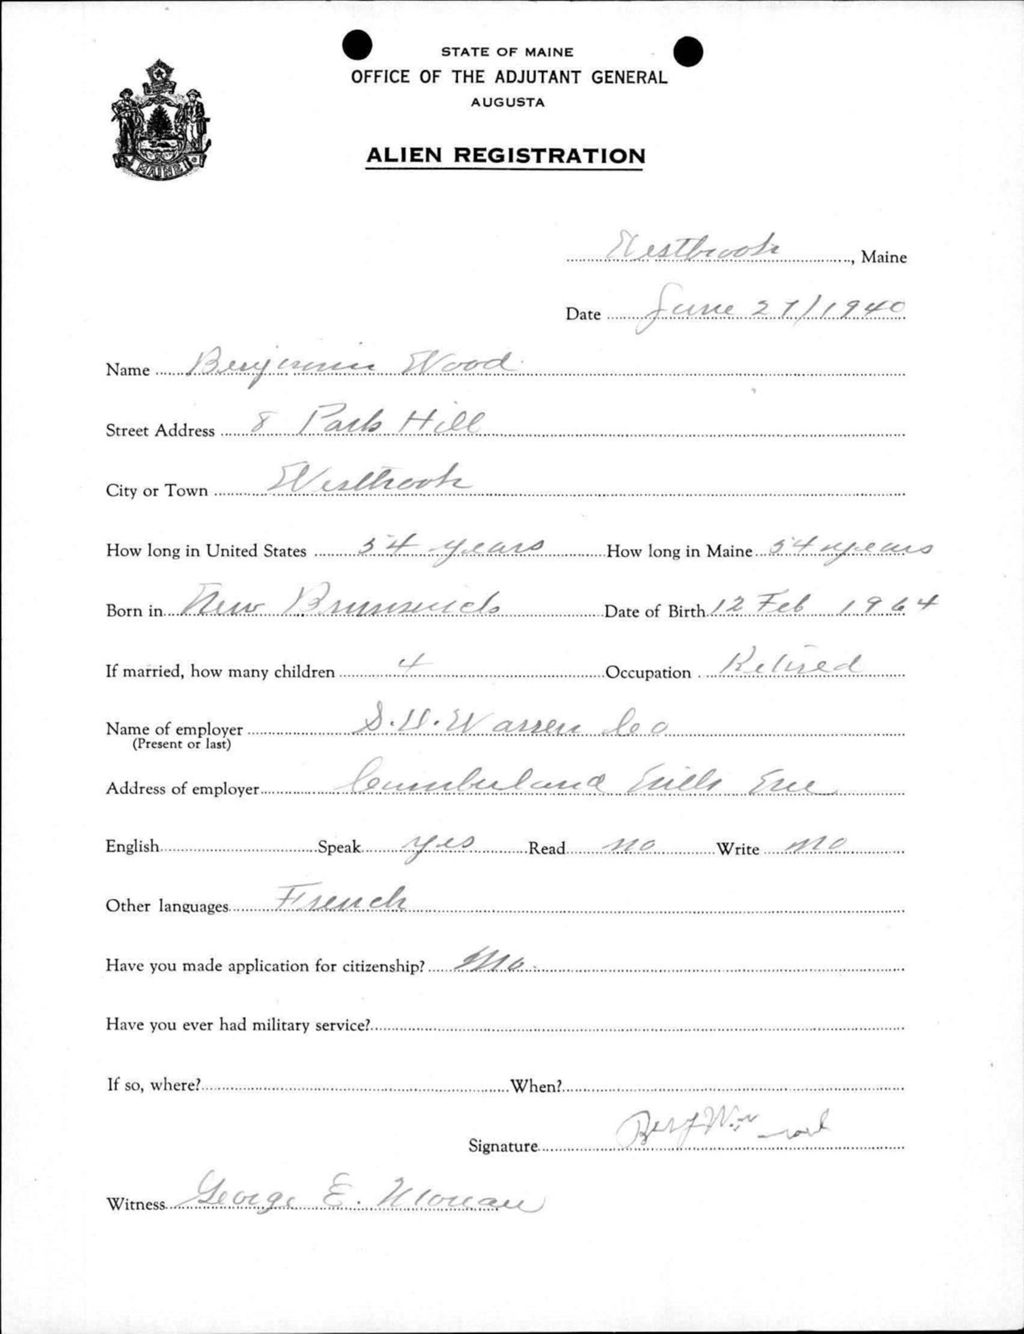 STATE OF MAINE
OFFICE OF THE ADJUTANT GENERAL
AUGUSTA
MAINE
ALIEN REGISTRATION
Westbrook, Maine
Date June 27/1940
Name Benjamin Wood
Street Address 8 Park Hill
City or Town Westbrook
How long in United States 54 years How long in Maine 54 years
Born in New Brunswick Date of Birth 12 Feb 1964
If married, how many children 4 Occupation Retired
Name of employer S.D. Warren Co
(Present or last)
Address of employer Cumberland Mills Me
English Speak yes Read no Write no
Other languages French
Have you made application for citizenship? No
Have you ever had military service?
If so, where? When?
Signature
Witness George E.